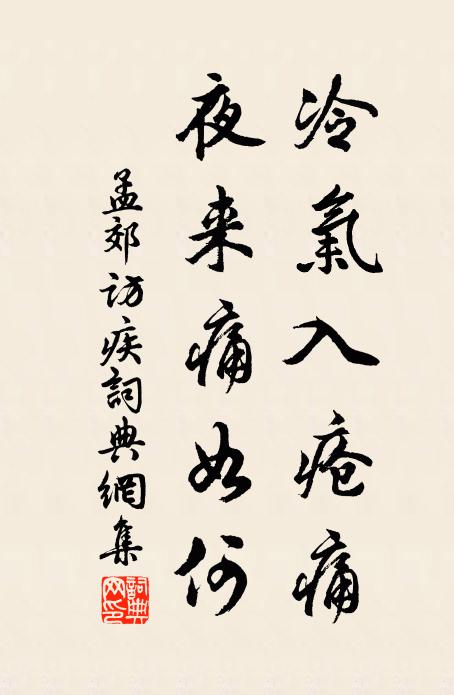 冷氣入疮痛
夜来痛如何
孟郊访疾詞典網集
詞典网印